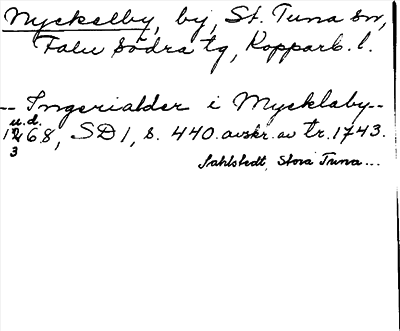 Myckelby, by, St. Tuna sn,
Falu Södra tg, Kopparb. l.
-- Ingerialder i Mycklaby --
u.d.
1268, SD1, s. 440. avskr. av tr. 1743.
3
Sahlstedt, Stora Tuna...